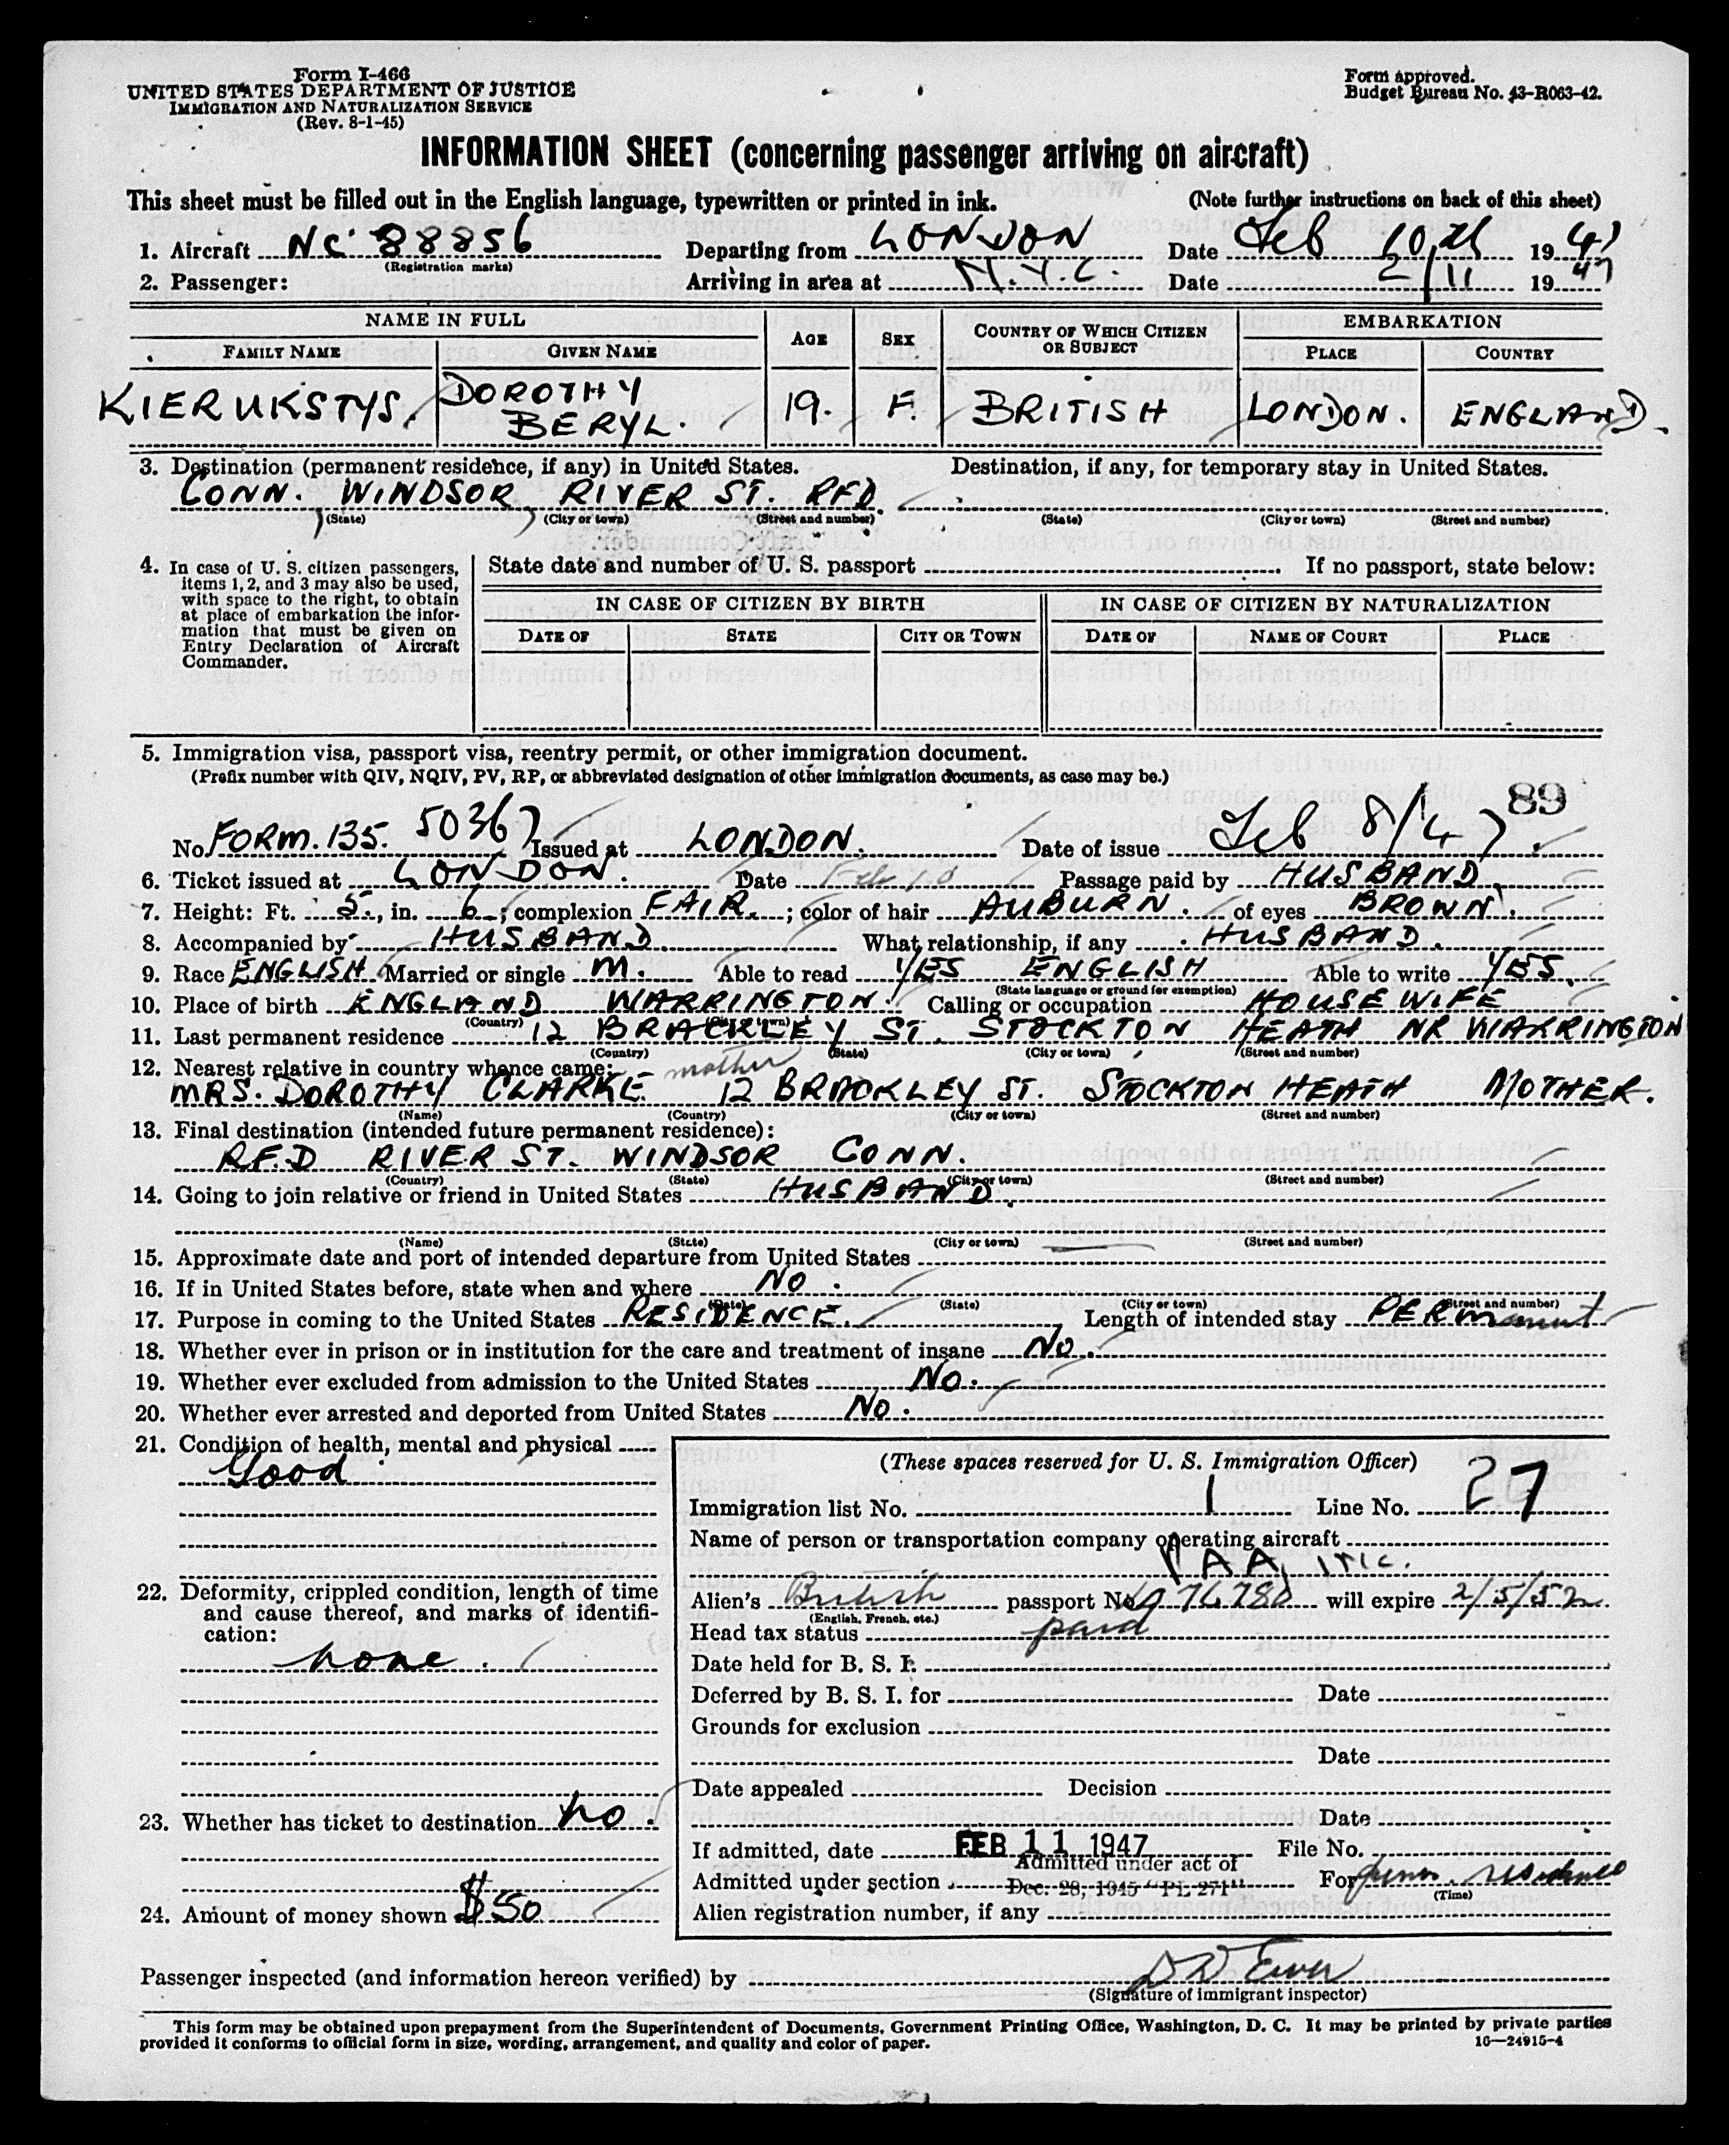 Form I-466
UNITED STATES DEPARTMENT OF JUSTICE
IMMIGRATION AND NATURALIZATION SERVICE
(Rev. 8-1-45)
Form approved.
Budget Bureau No. 43-R063-42.
INFORMATION SHEET (concerning passenger arriving on aircraft)
This sheet must be filled out in the English language, typewritten or printed in ink. (Note further instructions on back of this sheet)
1. Aircraft NC 88856 Departing from LONDON Date Feb 10th 1947
(Registration marks)
2. Passenger: Arriving in area at N.Y.C. Date 2/11 1947
NAME IN FULL AGE SEX COUNTRY OF WHICH CITIZEN OR SUBJECT EMBARKATION
FAMILY NAME GIVEN NAME PLACE COUNTRY
KIERUKSTYS. DOROTHY BERYL. 19. F. BRITISH LONDON. ENGLAND.
3. Destination (permanent residence, if any) in United States. Destination, if any, for temporary stay in United States.
CONN. WINDSOR RIVER ST. RFD.
(State) (City or town) (Street and number) (State) (City or town) (Street and number)
4. In case of U. S. citizen passengers, items 1, 2, and 3 may also be used, with space to the right, to obtain at place of embarkation the information that must be given on Entry Declaration of Aircraft Commander.
State date and number of U. S. passport If no passport, state below:
IN CASE OF CITIZEN BY BIRTH IN CASE OF CITIZEN BY NATURALIZATION
DATE OF STATE CITY OR TOWN DATE OF NAME OF COURT PLACE
5. Immigration visa, passport visa, reentry permit, or other immigration document.
(Prefix number with QIV, NQIV, PV, RP, or abbreviated designation of other immigration documents, as case may be.)
89
No. FORM. 135. 50367 Issued at LONDON. Date of issue Feb 8/47.
6. Ticket issued at LONDON. Date Feb 10 Passage paid by HUSBAND.
7. Height: Ft. 5., in. 6; complexion FAIR.; color of hair AUBURN. of eyes BROWN.
8. Accompanied by HUSBAND. What relationship, if any HUSBAND.
9. Race ENGLISH Married or single M. Able to read YES ENGLISH Able to write YES.
(State language or ground for exemption)
10. Place of birth ENGLAND WARRINGTON. Calling or occupation HOUSEWIFE
(Country) (City or town)
11. Last permanent residence 12 BRACKLEY ST. STOCKTON HEATH NR WARRINGTON
(Country) (State) (City or town) (Street and number)
12. Nearest relative in country whence came: mother
MRS. DOROTHY CLARKE 12 BRACKLEY ST. STOCKTON HEATH MOTHER.
(Name) (Country) (City or town) (Street and number)
13. Final destination (intended future permanent residence):
R.F.D RIVER ST. WINDSOR CONN.
(Country) (State) (City or town) (Street and number)
14. Going to join relative or friend in United States HUSBAND.
(Name) (State) (City or town) (Street and number)
15. Approximate date and port of intended departure from United States
16. If in United States before, state when and where NO.
(Date) (State) (City or town) (Street and number)
17. Purpose in coming to the United States RESIDENCE. Length of intended stay PERmanent
18. Whether ever in prison or in institution for the care and treatment of insane NO.
19. Whether ever excluded from admission to the United States NO.
20. Whether ever arrested and deported from United States NO.
21. Condition of health, mental and physical
Good
22. Deformity, crippled condition, length of time and cause thereof, and marks of identification:
none.
23. Whether has ticket to destination no.
24. Amount of money shown $50
(These spaces reserved for U. S. Immigration Officer)
Immigration list No. 1 Line No. 27
Name of person or transportation company operating aircraft
PAA, Inc.
Alien's British passport No. will expire 2/5/52
(English, French, etc.)
Head tax status paid
Date held for B. S. I.
Deferred by B. S. I. for Date
Grounds for exclusion
Date
Date appealed Decision
Date
If admitted, date FEB 11 1947 File No.
Admitted under act of
Admitted under section Dec. 28, 1945 "PL 271" For
(Time)
Alien registration number, if any
Passenger inspected (and information hereon verified) by
(Signature of immigrant inspector)
This form may be obtained upon prepayment from the Superintendent of Documents, Government Printing Office, Washington, D. C. It may be printed by private parties
provided it conforms to official form in size, wording, arrangement, and quality and color of paper. 16—24915-4